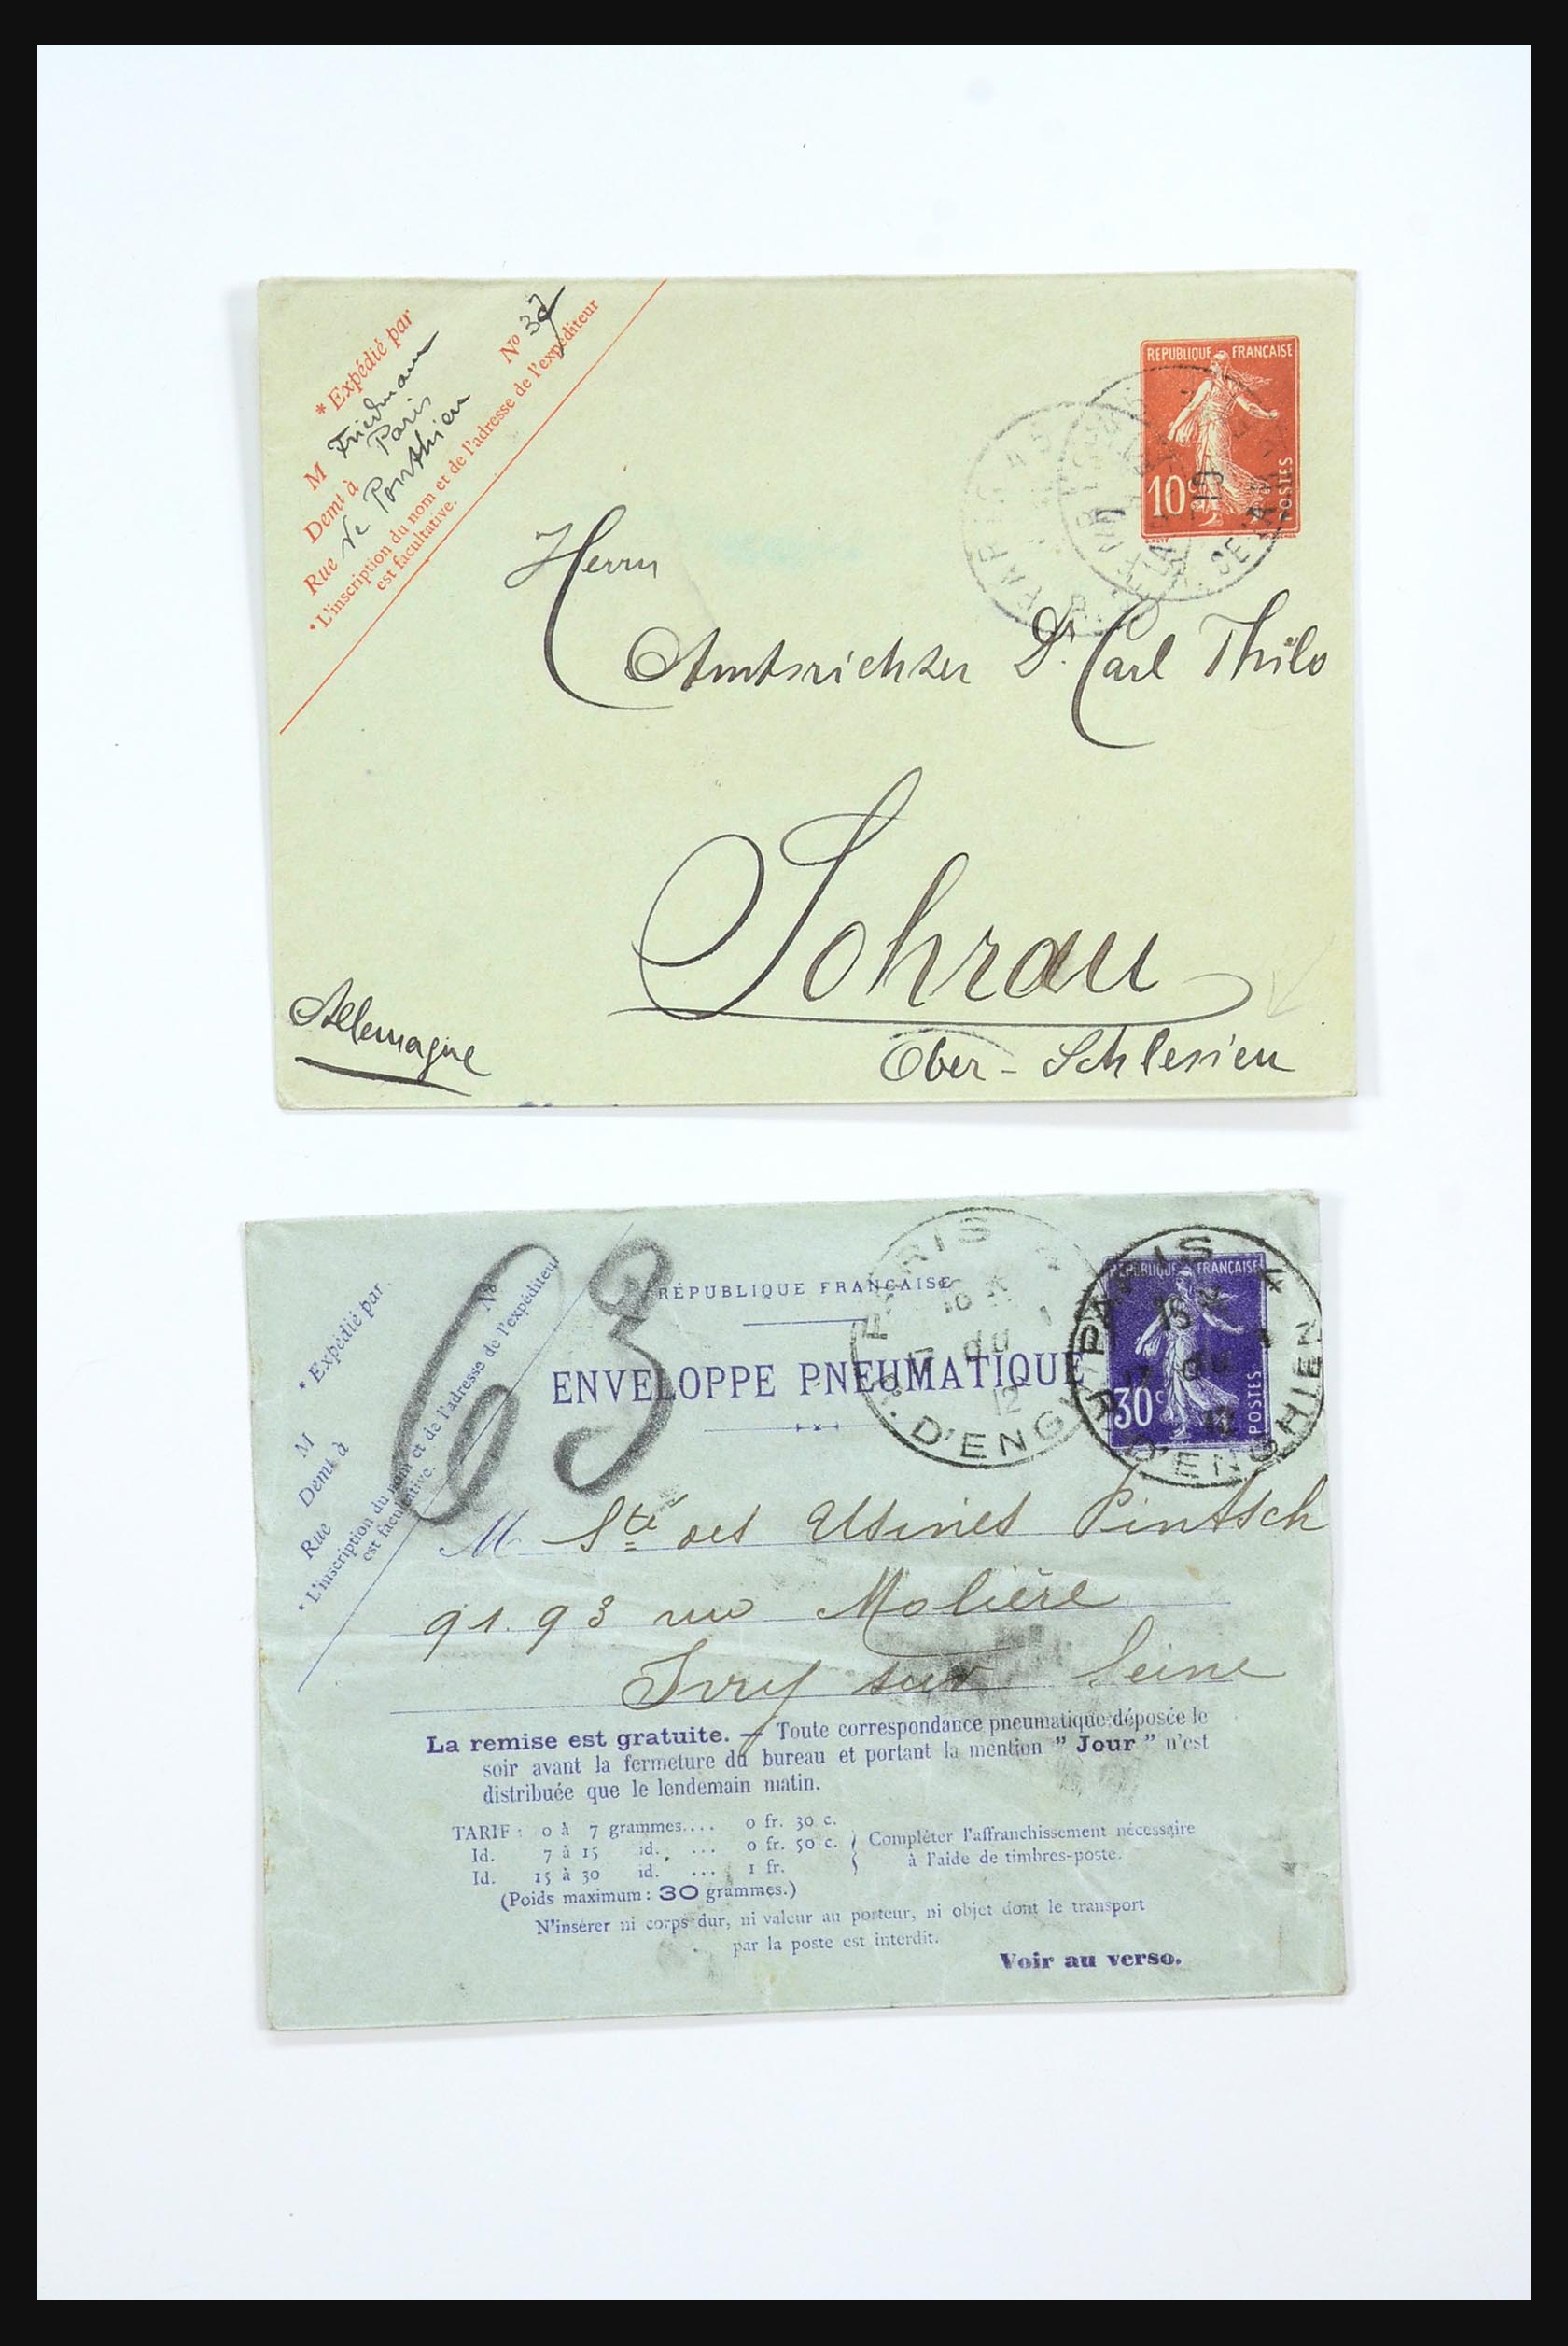 * Expédié par
M Friedmann
Demt à Paris
Rue de Ponthieu
No 37
* L'inscription du nom et de l'adresse de l'expéditeur
est facultative.
REPUBLIQUE FRANÇAISE
10c
POSTES
Herrn
Amtsrichter Dr. Carl Thilo
Sohrau
Ober-Schlesien
Allemagne
* Expédié par
M
Demt à
Rue
No
* L'inscription du nom et de l'adresse de l'expéditeur
est facultative.
63
RÉPUBLIQUE FRANÇAISE
ENVELOPPE PNEUMATIQUE
PARIS
R. D'ENGHIEN
12
REPUBLIQUE FRANÇAISE
30c
POSTES
PARIS
R. D'ENGHIEN
12
M Sté des Usines Pintsch
91.93 rue Molière
Ivry sur Seine
La remise est gratuite. — Toute correspondance pneumatique déposée le
soir avant la fermeture du bureau et portant la mention " Jour " n'est
distribuée que le lendemain matin.
TARIF : 0 à 7 grammes.... 0 fr. 30 c.
Id. 7 à 15 id. ... 0 fr. 50 c.
Id. 15 à 30 id. ... 1 fr.
Compléter l'affranchissement nécessaire
à l'aide de timbres-poste.
(Poids maximum : 30 grammes.)
N'insérer ni corps dur, ni valeur au porteur, ni objet dont le transport
par la poste est interdit.
Voir au verso.